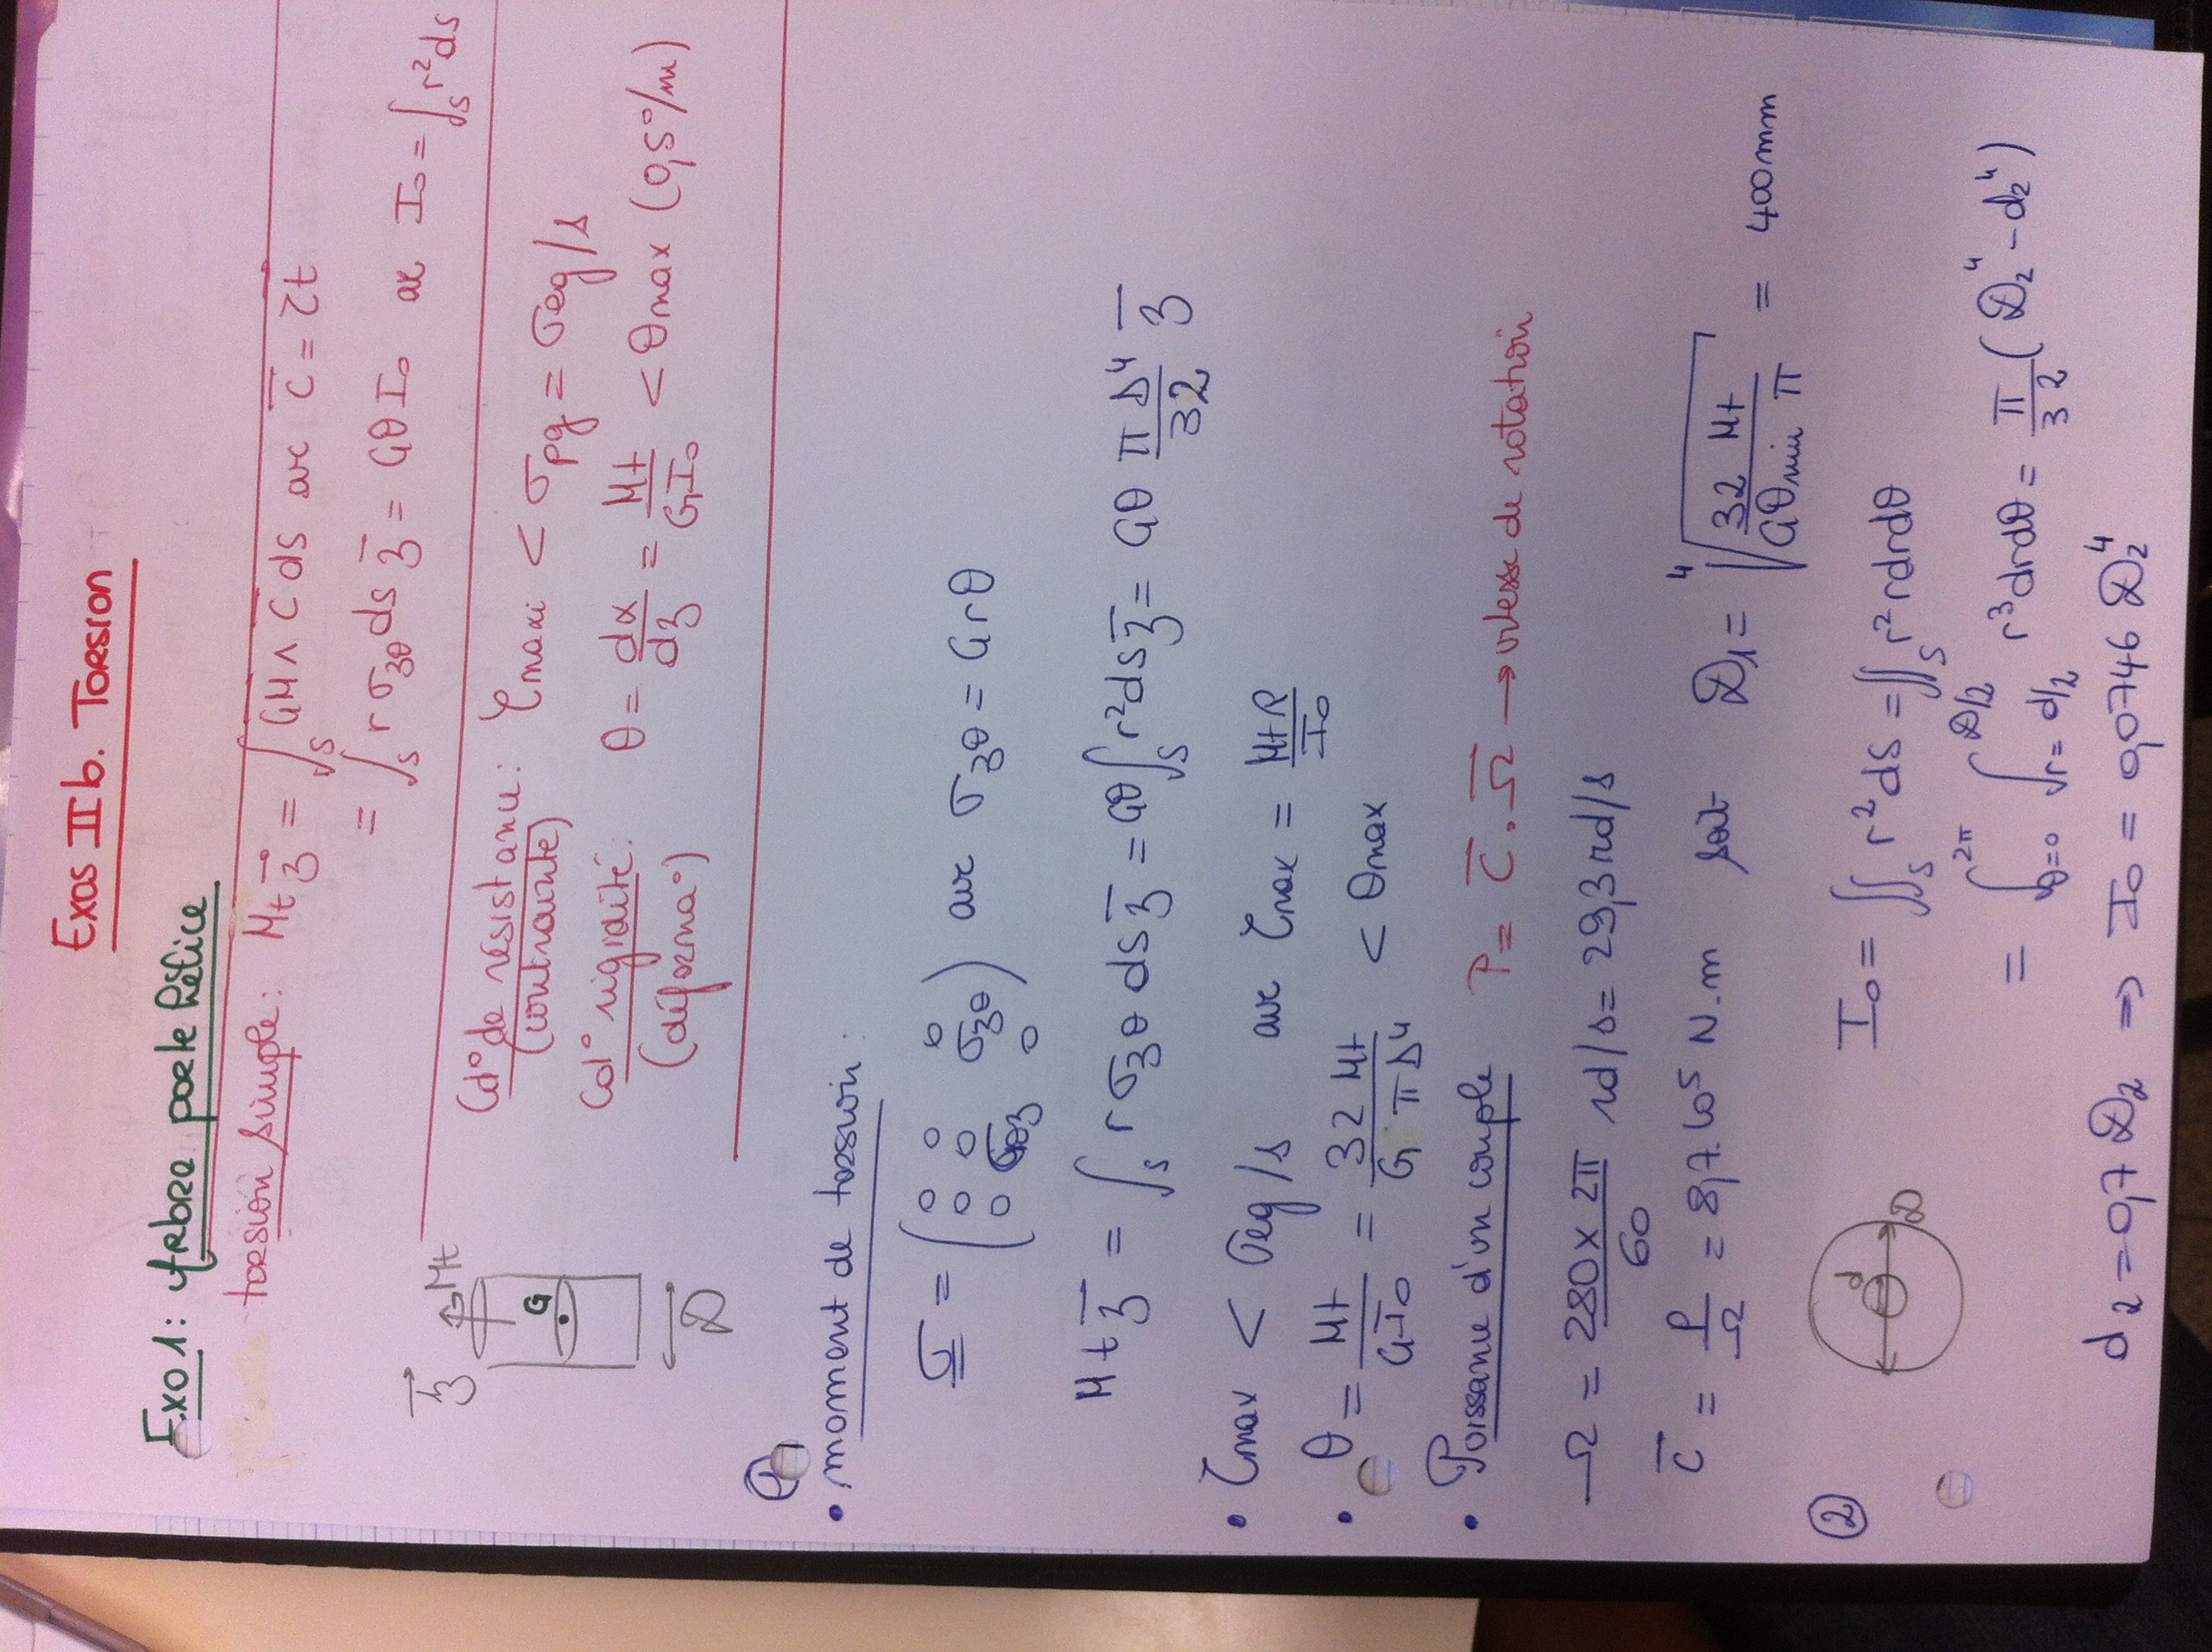 Exos II b. Torsion
Exo 1: Arbre porte hélice
torsion simple: Mt z⃗ = ∫_S GM ∧ C ds avc C = τt⃗
= ∫_S r σ_zθ ds z = GθI₀ ac I₀ = ∫_S r² ds
z⃗ Mt
G
D
Cd° de résistance: τmaxi < σpg = σeg/s
(contrainte)
Cd° rigidité: θ = dα/dz = Mt/GI₀ < θmax (0,5°/m)
(déforma°)
①
• moment de torsion:
σ = (0 0 0
0 0 σ_zθ
0 σ_θz 0) avc σ_zθ = G r θ
Mt z = ∫_S r σ_zθ ds z = Gθ ∫_S r² ds z = Gθ πD⁴/32 z
• τmax < σeg/s avc τmax = Mt R/I₀
• θ = Mt/GI₀ = 32 Mt/G πD⁴ < θmax
• Puissance d'un couple P = C . Ω → vitesse de rotation
Ω = 280 x 2π/60 rd/s = 29,3 rd/s
C = P/Ω = 8,7.10⁵ N.m soit D₁ = ⁴√(32 Mt/Gθmin π) = 400 mm
② d D I₀ = ∬_S r² ds = ∬_S r² r dr dθ
= ∫_{θ=0}^{2π} ∫_{r=d/2}^{D/2} r³ dr dθ = π/32 (D₂⁴ - d₂⁴)
d₂ = 0,7 D₂ ⇒ I₀ = 0,0746 D₂⁴